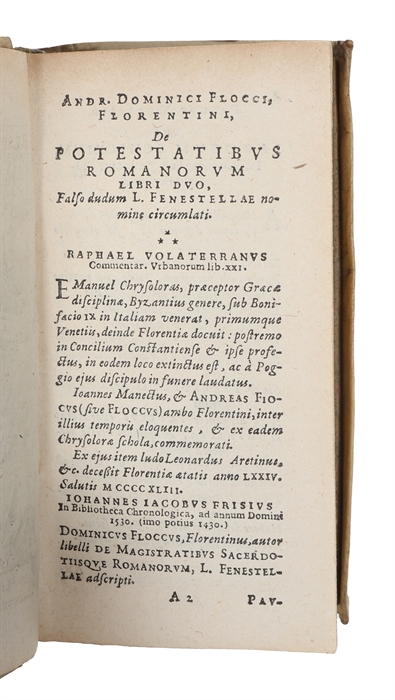 ANDR. DOMINICI FLOCCI,
FLORENTINI,
De
POTESTATIBVS
ROMANORVM
LIBRI DVO,
Falſo dudum L. FENESTELLAE no-
mine circumlati.
* * *
RAPHAEL VOLATERRANVS
Commentar. Vrbanorum lib. XXI.
EManuel Chryſoloras, præceptor Græcæ
diſciplinæ, Byzantius genere, ſub Boni-
facio IX in Italiam venerat, primumque
Venetiis, deinde Florentiæ docuit: poſtremo
in Concilium Conſtantienſe & ipſe profe-
ctus, in eodem loco extinctus eſt, ac à Pog-
gio ejus diſcipulo in funere laudatus.
Ioannes Manectus, & ANDREAS FIO-
CVS (ſive FLOCCVS) ambo Florentini, inter
illius temporis eloquentes, & ex eadem
Chryſoloræ ſchola, commemorati.
Ex ejus item ludo Leonardus Aretinus,
&c. deceſſit Florentiæ ætatis anno LXXIV.
Salutis MCCCCXLIII.
IOHANNES IACOBVS FRISIVS
In Bibliotheca Chronologica, ad annum Domini
1530. (imo potius 1430.)
DOMINICVS FLOCCVS, Florentinus, autor
libelli DE MAGISTRATIBVS SACERDO-
TIISQVE ROMANORVM, L. FENESTEL-
LAE adſcripti.
A 2 PAV-